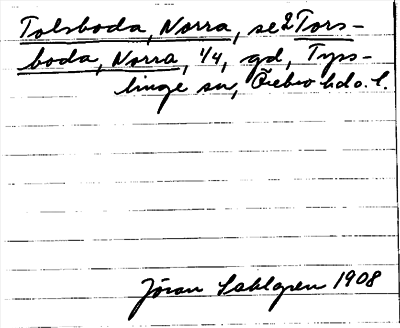 Tolsboda, Norra, se 2 Tors-
boda, Norra, 1/4, gd, Tyss-
linge sn, Örebro hd o. l.
Jöran Sahlgren 1908